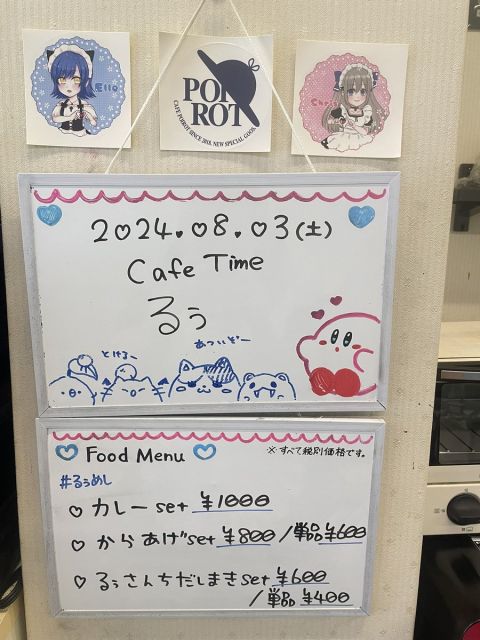 Ello
POI
ROT
CAFE POIROT SINCE 2018. NEW SPECIAL GOODS.
Chris
2024.08.03(土)
Cafe Time
るぅ
とけるー
あついぞー
Food Menu
※すべて税別価格です。
#るぅめし
カレーset ¥1000
からあげset ¥800/単品¥600
るぅさんちだしまきset ¥600
/単品 ¥400